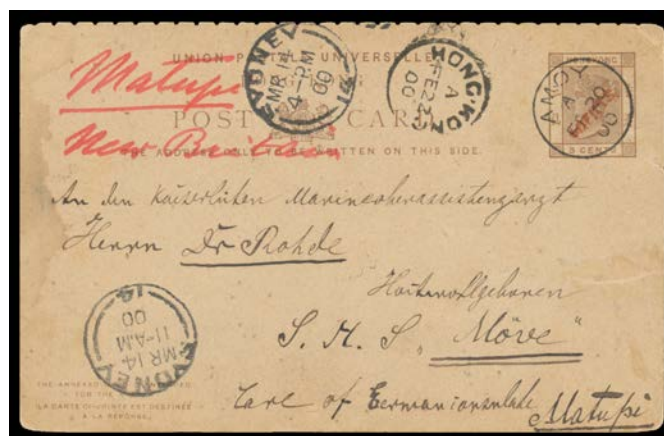 UNION POSTALE UNIVERSELLE
HONGKONG
POST CARD
THE ADDRESS ONLY TO BE WRITTEN ON THIS SIDE.
5 CENTS
Matupi
New Britain
SYDNEY
MR 14
4-PM
00
14
HONG KONG
A
FE 22
00
AMOY
A
FE 20
00
An den Kaiserlichen Marineoberassistenzarzt
Herrn Dr Rohde
Hochwohlgeboren
S. M. S. „Möve"
Care of German consulate Matupi
SYDNEY
MR 14
11-AM
00
14
THE ANNEXED
FOR THE
LA CARTE CI-JOINTE EST DESTINÉE
À LA RÉPONSE.